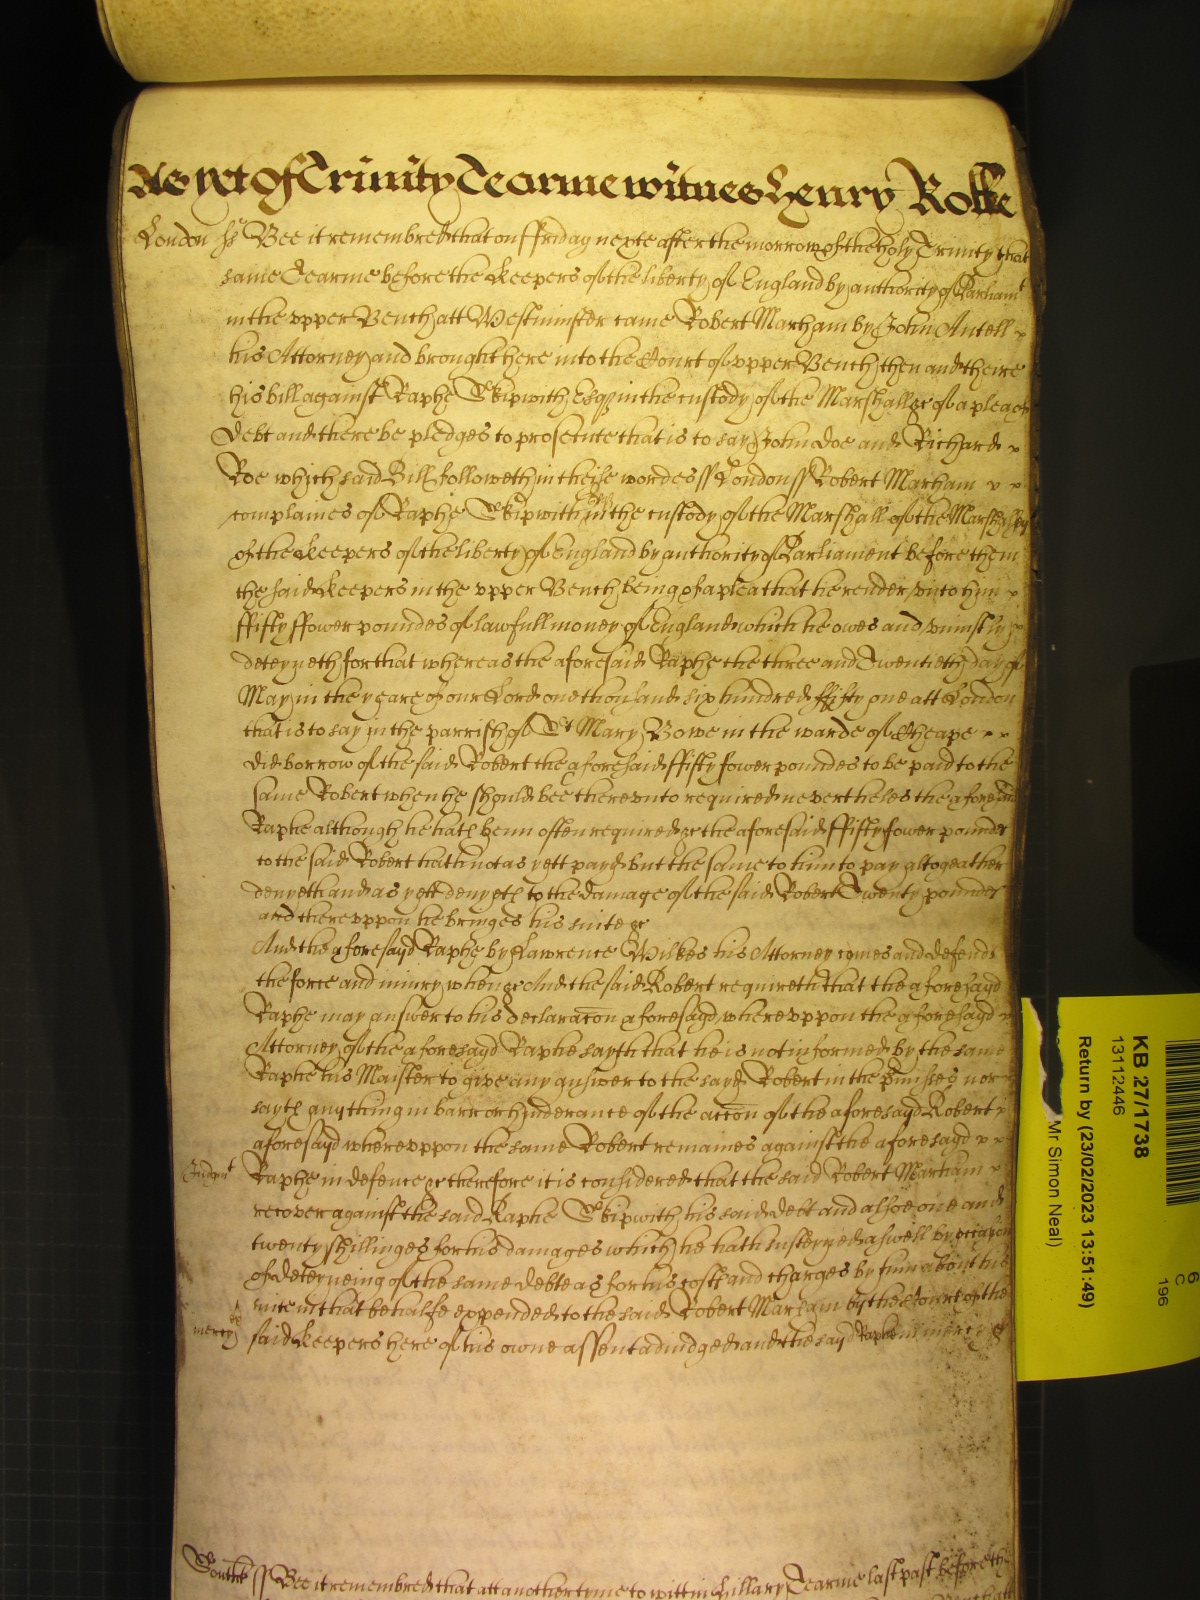 As yet of Trinity Tearme witnes Henry Rolle
London ss Bee it remembred that on ffriday nexte after the morrow of the holy Trinity that
same Tearme before the Keepers of the liberty of England by authority of Parliamt
in the vpper Bench att Westminster came Robert Marham by John Antell
his Attorney and brought here into the Court of vpper Bench then and theire
his bill against Raphe Skipwith Esqr in the custody of the Marshall &c of a plea of
Debt and there be pledges to prosecute that is to say John Doe and Richard
Roe which said Bill followeth in theise wordes ss London ss Robert Marham
complaines of Raphe Skipwith Esqr in the custody of the Marshall of the Marshalsey
of the Keepers of the liberty of England by authority of Parliament before them
the said Keepers in the vpper Bench being of a plea that he render vnto him
ffifty ffower poundes of lawfull money of England which he owes and vniustly
deteyneth for that whereas the aforesaid Raphe the three and Twentieth day of
May in the yeare of our Lord one thousand six hundred ffifty one att London
that is to say in the parrish of St Mary Bowe in the warde of Cheape
did borrow of the said Robert the aforesaid ffifty fower poundes to be paid to the
same Robert when he should bee therevnto required nevertheles the aforesaid
Raphe although he hath benn often required &c the aforesaid ffifty fower poundes
to the said Robert hath not as yett payd but the same to him to pay altogeather
denyeth and as yett denyeth to the damage of the said Robert Twenty poundes
and therevppon he bringes his suite &c
And the aforesayd Raphe by Lawrence Wilkes his Attorney comes and defends
the force and iniury when &c And the said Robert requireth that the aforesayd
Raphe may answer to his declaracon aforesayd wherevppon the aforesayd
Attorney of the aforesayd Raphe sayth that he is not informed by the same
Raphe his Maister to give any answer to the sayd Robert in the pmisses nor
sayth anything in barr or hinderance of the accon of the aforesayd Robert
aforesayd wherevppon the same Robert remaines against the aforesayd
Judgmt Raphe in defence &c therefore it is considered that the said Robert Marham
recover against the said Raphe Skipwith his said debt and alsoe one and
twenty shillinges for his damages which he hath susteyned aswell by occasion
of deteyneing of the same debte as for his costs and charges by him about his
suite in that behalfe expended to the said Robert Marham by the Court of the
mercy said Keepers here of his owne assent adiudged and the sayd Raphe in mercy &c
South ss Bee it remembred that att another tyme to witt in Hillary Tearme last past before the
KB 27/1738
13112446
Return by (23/02/2023 13:51:49)
Mr Simon Neal)
6
C
196